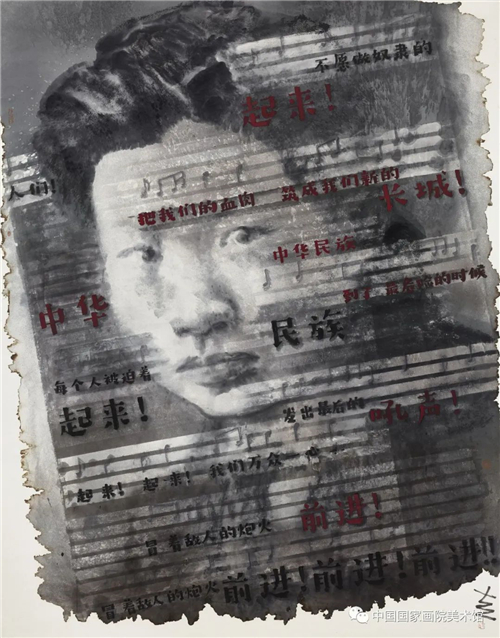 不愿做奴隶的
起来！
人们！
把我们的血肉 筑成我们新的 长城！
中华民族
中华
到了 最后 的时候
民族
每个人被迫着
起来！
发出最后的 吼声！
起来！ 起来！ 我们万众一心
前进！
冒着敌人的炮火
冒着敌人的炮火 前进！前进！前进！！
中国国家画院美术馆